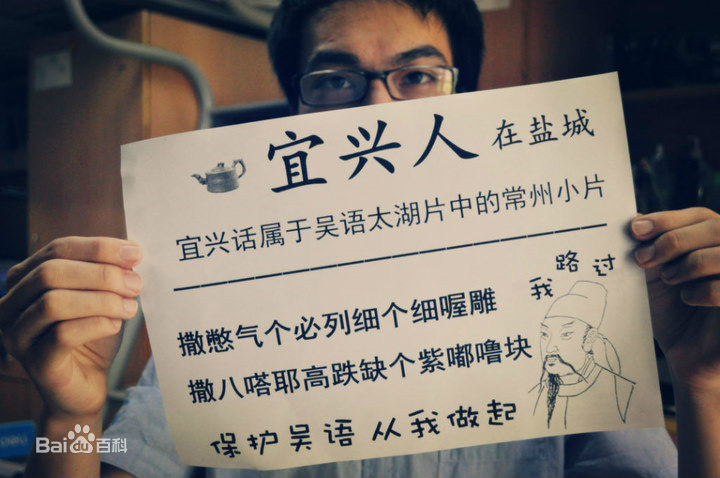 宜兴人 在盐城
宜兴话属于吴语太湖片中的常州小片
我路过
撒憋气个必列细个细喔雕
撒八嗒耶高跌缺个紫嘟噜块
保护吴语 从我做起
Baidu百科